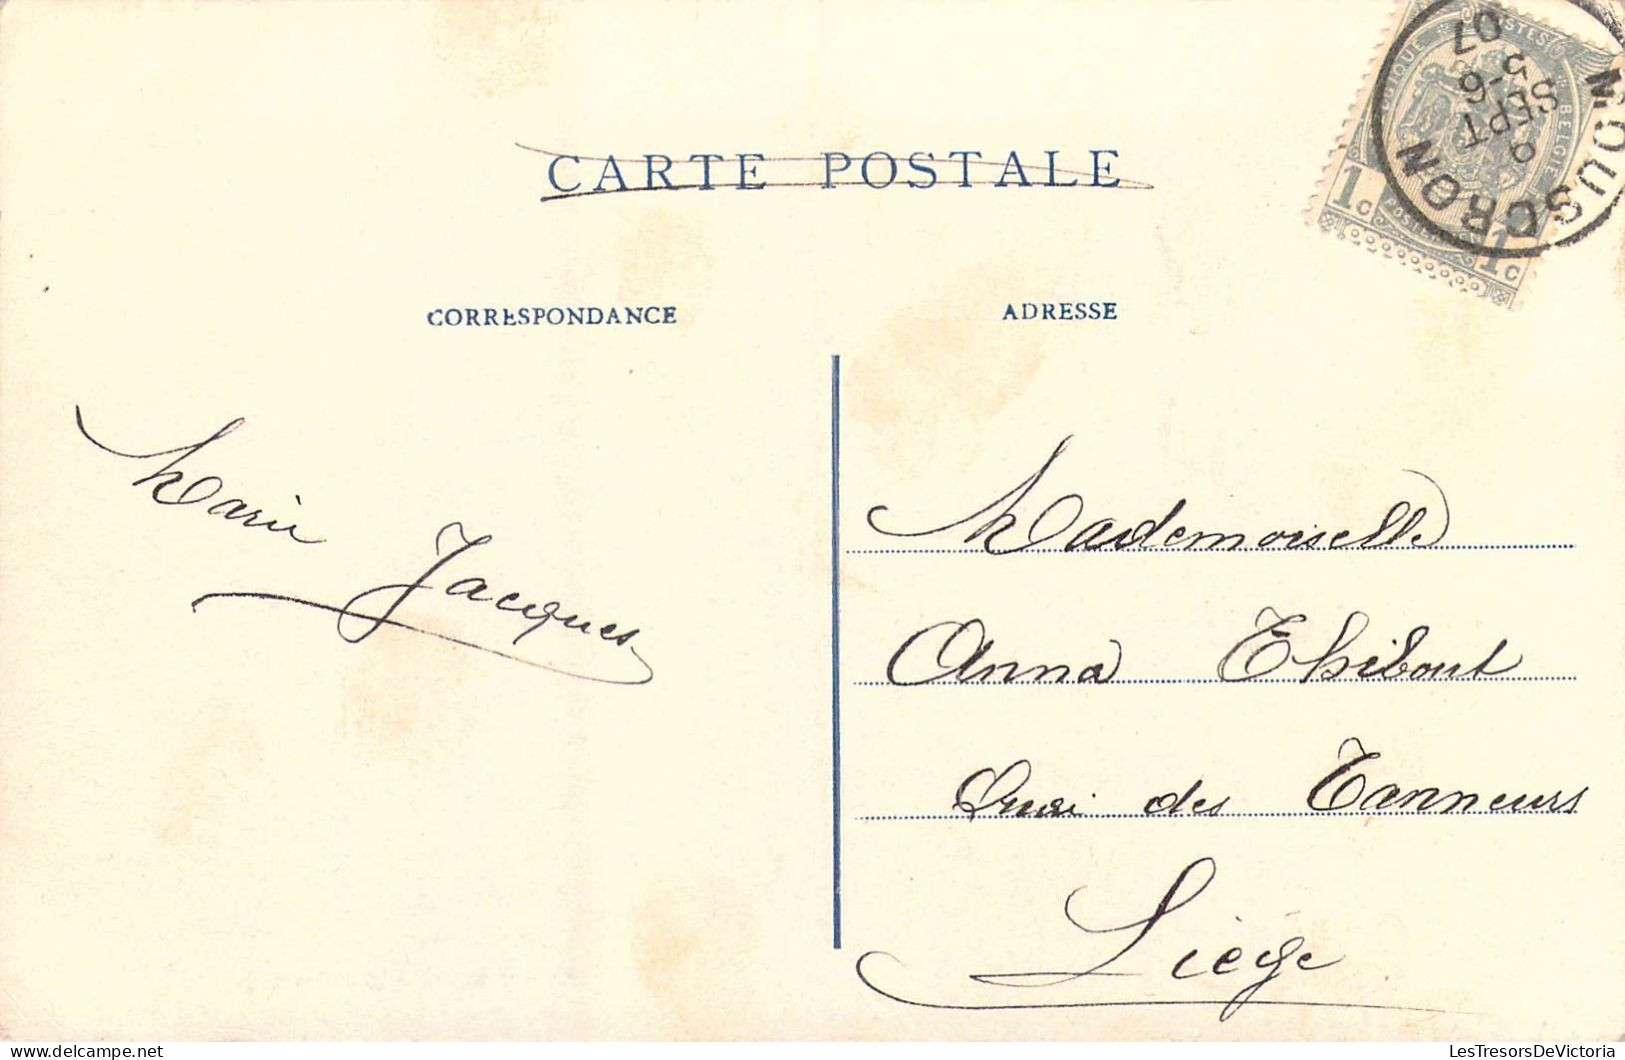 CARTE POSTALE
CORRESPONDANCE
ADRESSE
BELGIQUE POSTES BELGIE POSTERIJEN
1c 1c
MOUSCRON
9
SEPT
5-6
07
Marie
Jacques
Mademoiselle
Anna Thibout
Quai des Tanneurs
Liége
LesTresorsDeVictoria